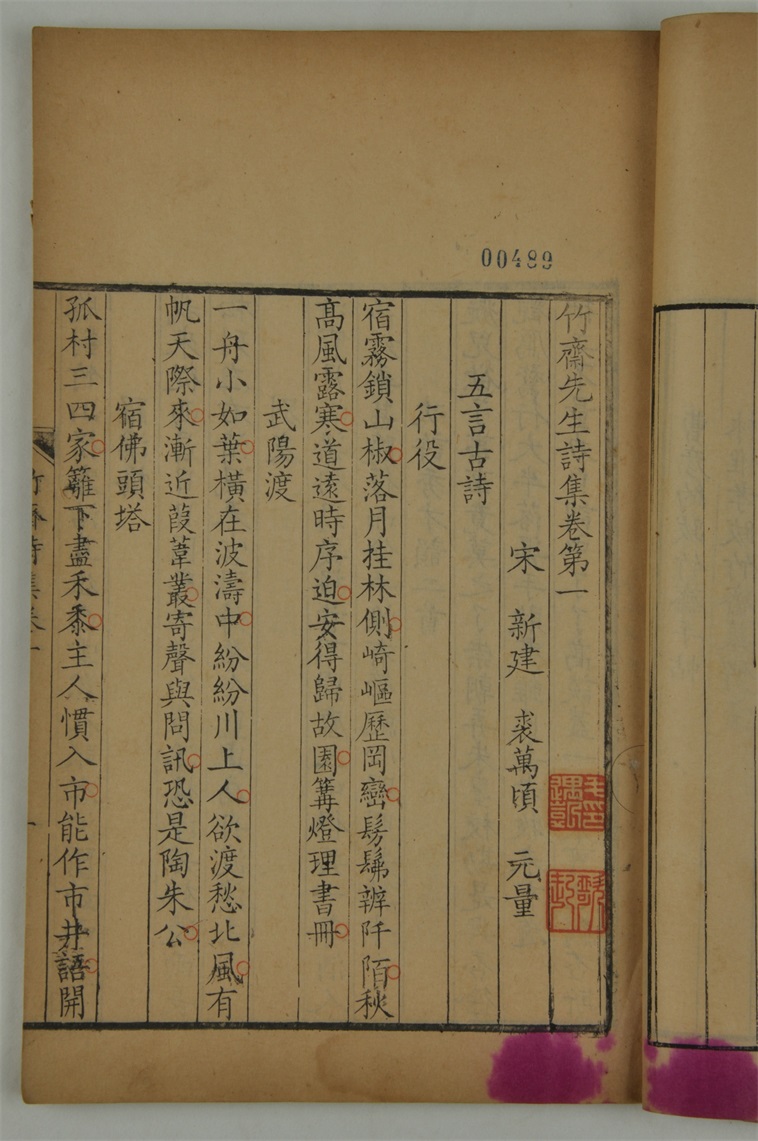 00489
竹齋先生詩集卷第一
宋 新建 裘萬頃 元量
五言古詩
行役
宿霧鎖山椒落月挂林側崎嶇歷岡巒髣髴辨阡陌秋
髙風露寒道遠時序迫安得歸故園篝燈理書冊
武陽渡
一舟小如葉橫在波濤中紛紛川上人欲渡愁北風有
帆天際來漸近葭葦叢寄聲與問訊恐是陶朱公
宿佛頭塔
孤村三四家籬下盡禾黍主人慣入市能作市井語開
竹齋詩集卷一